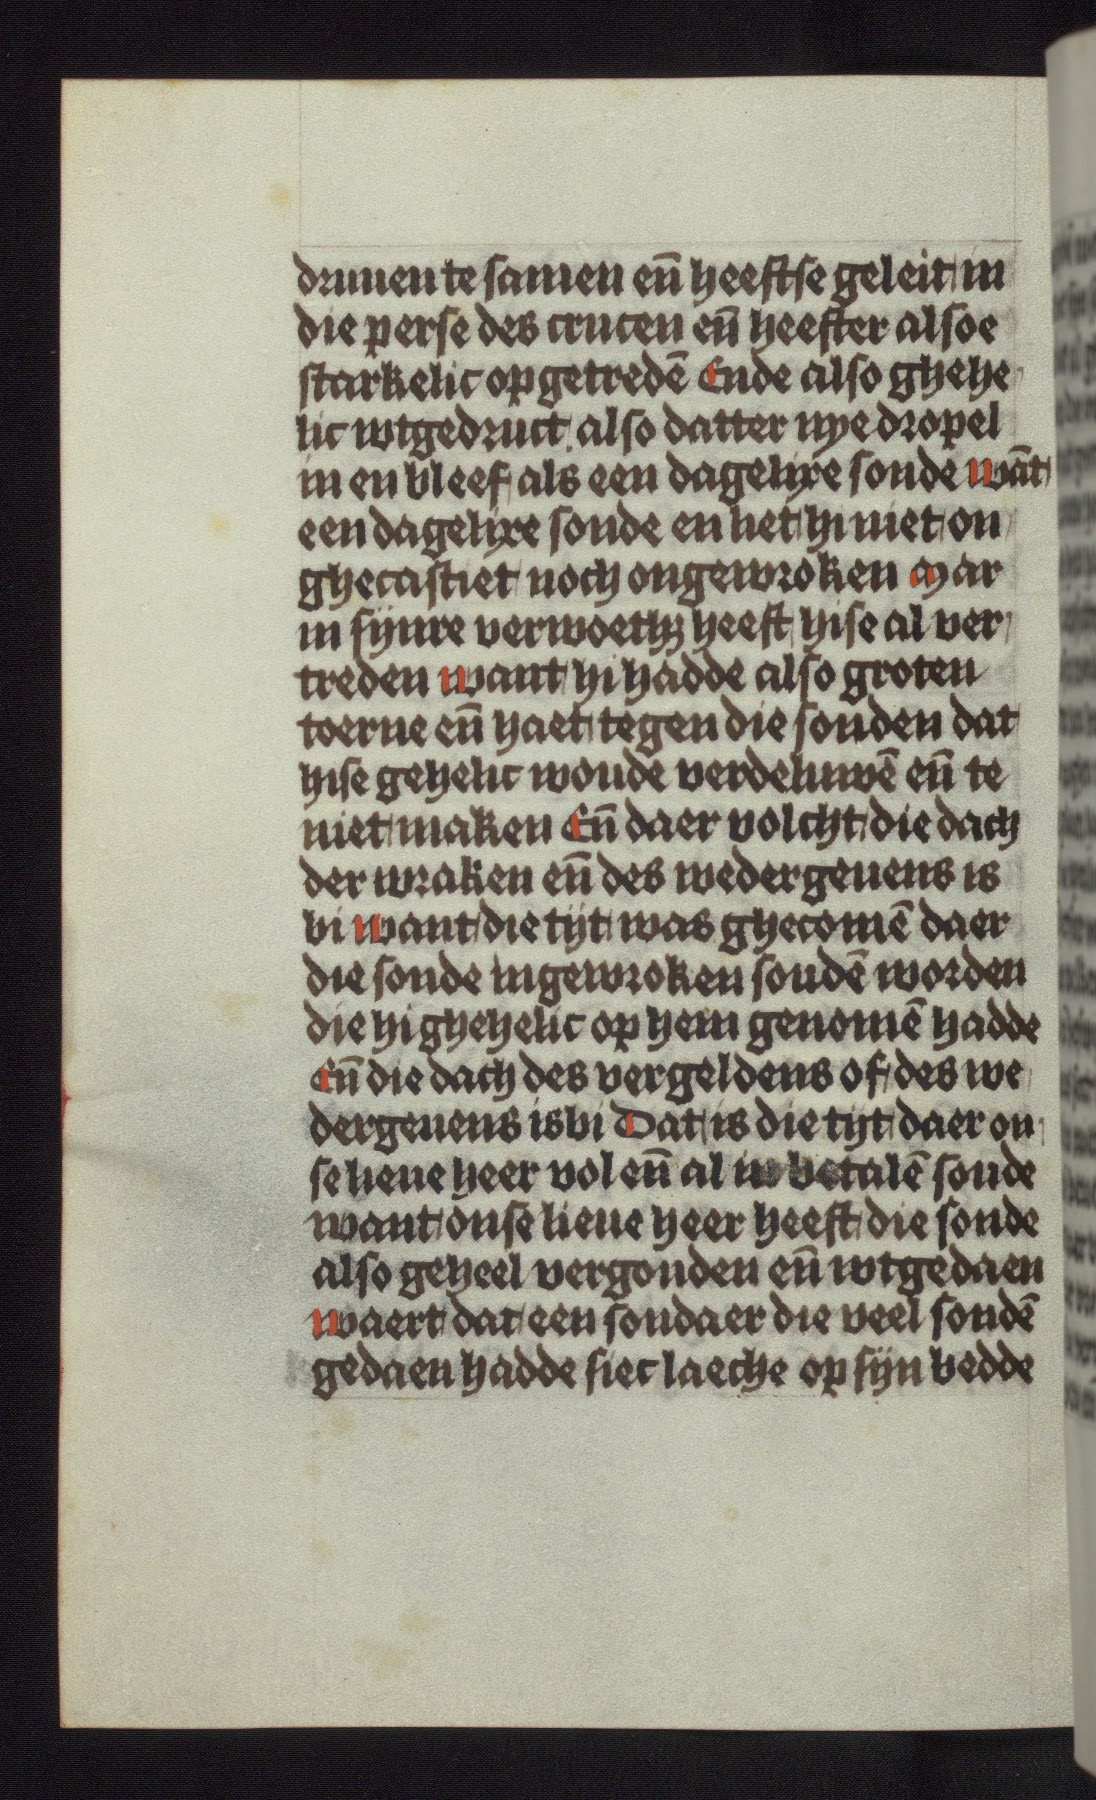 druuen te samen en̄ heeftse geleit in
die perse des crucen en̄ heefter alsoe
starkelic op getredē Ende also ghehe
lic wtgedruct also datter nye dropel
in en bleef als een dagelixe sonde wāt
een dagelixe sonde en liet hi niet on
ghecastiet noch ongewroken Mar
in sijnre verwoeth3 heeft hise al ver
treden want hi hadde also groten
toerne en̄ haet tegen die sonden dat
hise gehelic woude verdeluwē en̄ te
niet maken En̄ daer volcht die dach
der wraken en̄ des wedergeuens is
bi want die tijt was ghecomē daer
die sonde in gewroken soudē worden
die hi ghehelic op hem genomē hadde
En̄ die dach des vergeldens of des we
dergeuens is bi Dat is die tijt daer on
se lieue heer vol en̄ al betalē soude
want onse lieue heer heeft die sonde
also geheel vergonden en̄ wtgedaen
waert dat een sondaer die veel sondē
gedaen hadde siec laeche op sijn bedde